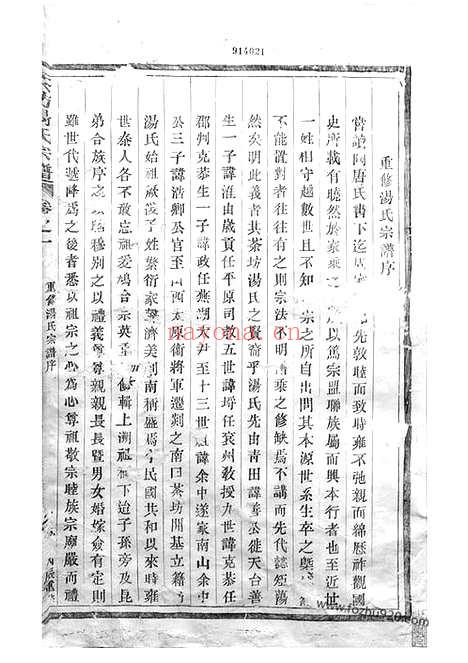 914021
重修湯氏宗譜序
嘗讀陶唐氏書下迄
先敦睦而致時雍不弛親而綿歷祚觀國
史所載有曉然於
以篤宗盟聯族屬而興本行者也至近
一姓相守越數世且不知
宗之所自出問其本源世系生卒之
不能置對者往往有之則宗法不明
乘之修缺焉不講而先代誌
然矣明此義者其茶坊湯氏之賢裔乎湯氏先由青田諱善公徙天台善
生一子諱淮由歲貢任平原司
教五世諱
任袁州教授九世諱克恭任
郡判克恭生一子諱政任蕪湖
尹至十三世
諱余中遂家南山余中
公三子諱浩卿公官至
西太原衛將軍遷剡之南曰茶坊開基立籍
湯氏始祖
之姓繁衍家
濟美剡南稱盛焉
民國共和以來時雍
世泰人各不忘祖爰鳩合宗英重
輯上溯祖
下迨子孫旁及昆
弟合族序之
穆別之以禮義尊尊親親長長暨男女婚嫁僉有定則
雖世代遞降為之後者悉以祖宗之心為心尊祖敬宗睦族宗廟嚴而禮
湯氏宗譜
卷之一
重修湯氏宗譜序
nayona.cn
www.fozhu920.com